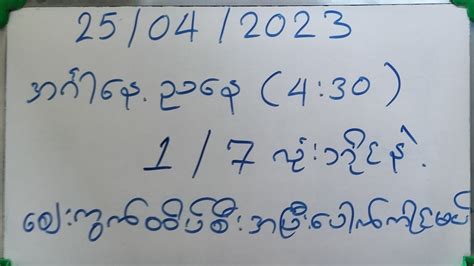 25/04/2023
အင်္ဂါနေ့ ညနေ (4:30)
1/7 လုံးဘိုင်နဲ့
ဈေးကွက်ထိပ်စီး အပြီးပေါက်